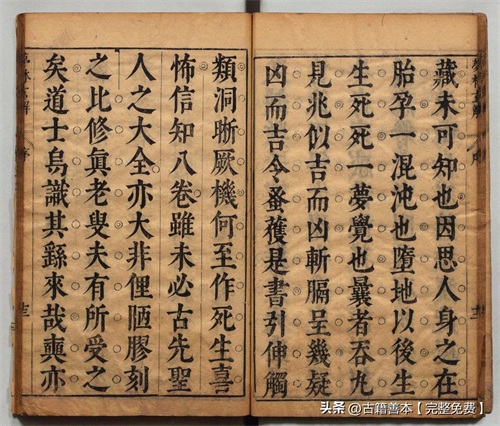 藏未可知也因思人身之在
胎孕一混沌也墮地以後生
生死死一夢覺也曩者吞九
見兆似吉而凶斬膈呈幾疑
凶而吉今蚤獲是書引伸觸
類洞晰厥機何至作死生喜
怖信知八卷雖未必古先聖
人之大全亦大非俚陋膠刻
之比修眞老叟夫有所受之
矣道士烏識其繇來哉奭亦
序
十三
头条 @古籍善本【完整免费】